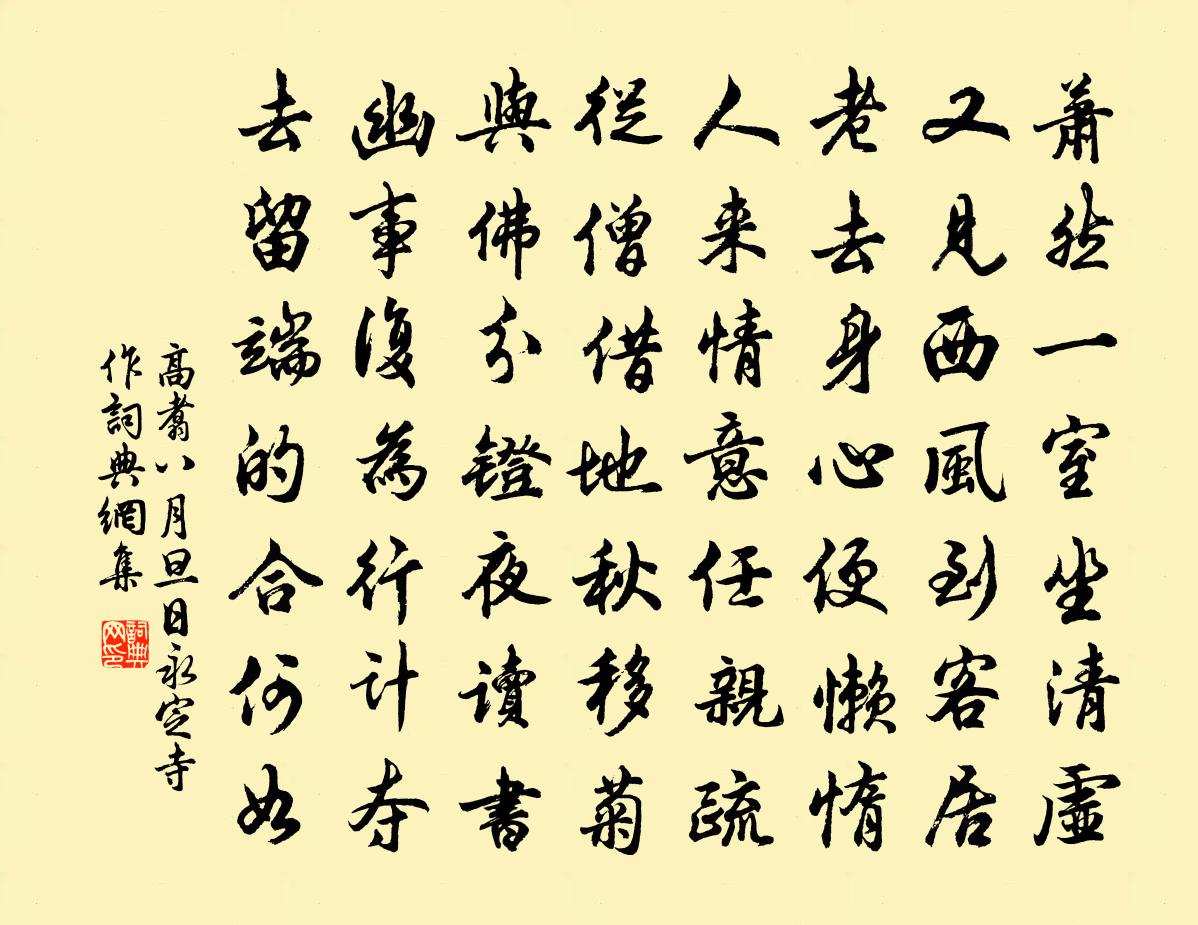 蕭然一室坐清虛
又見西風到客居
老去身心便懶惰
人来情意任親疏
從僧借地秋移菊
與佛分鐙夜讀書
幽事復為行計夺
去留端的合何如
高翥八月旦日永定寺
作詞典網集
詞典網印